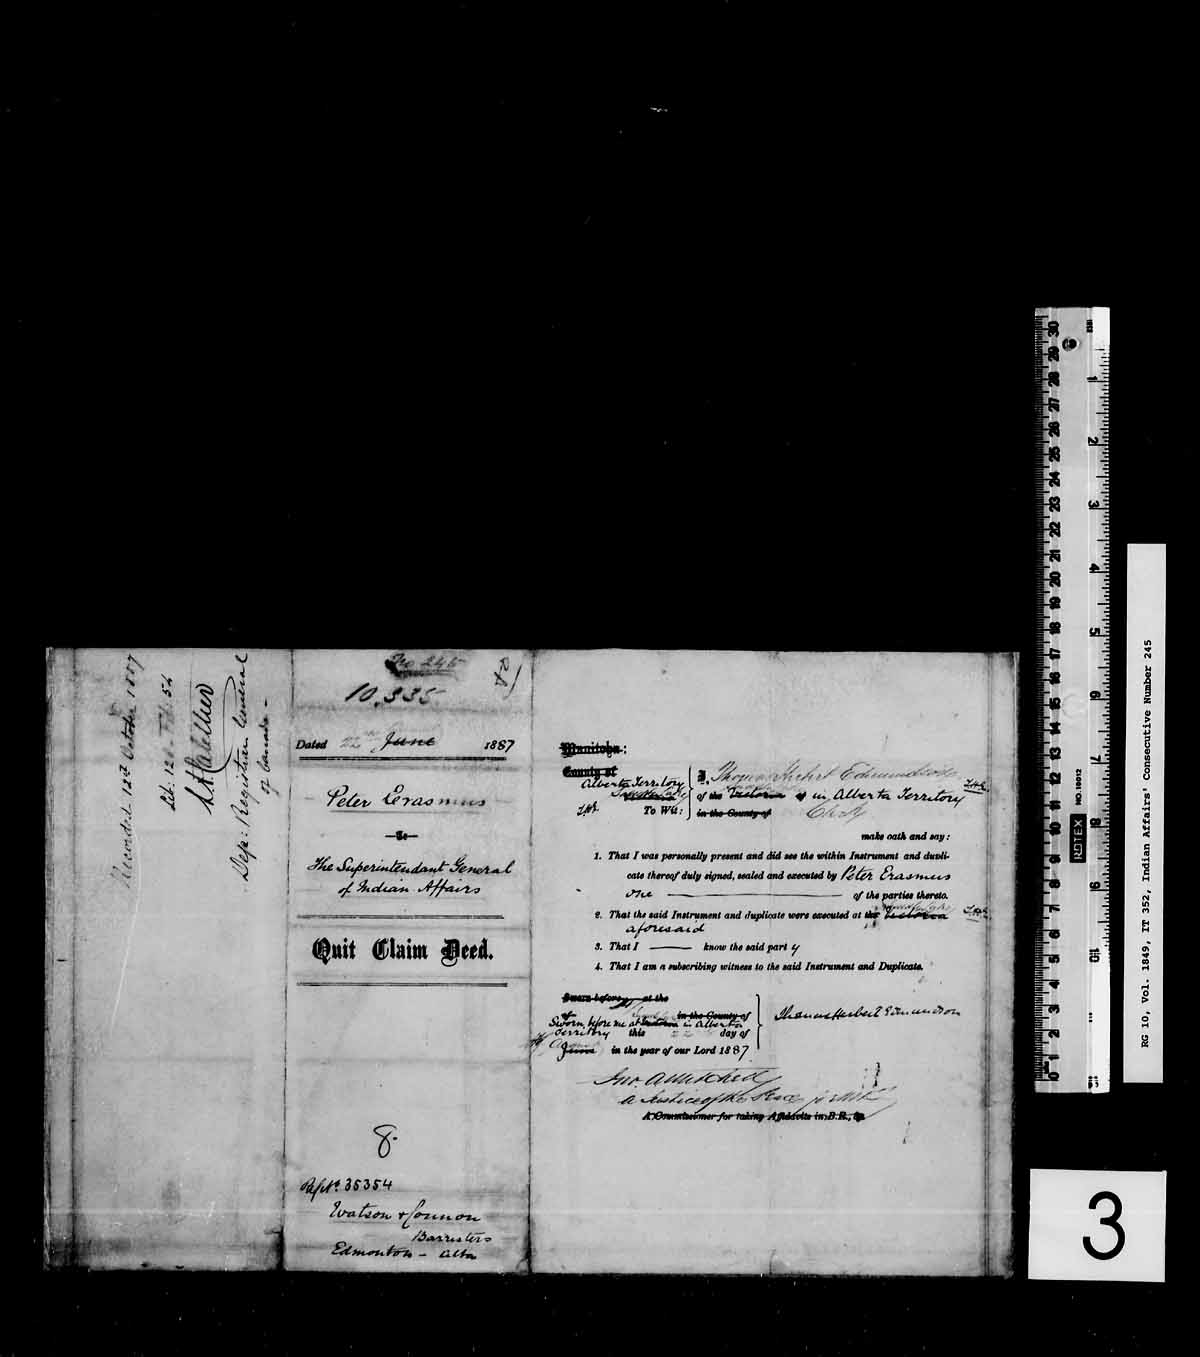 Recorded 12th October 1887
Lib: 12 Fol: 54
Dep: Registrar General
of Canada -
No 245
10,335
Dated 22nd June 1887
Peter Erasmus
To
The Superintendent General
of Indian Affairs
Quit Claim Deed.
8.
Ref No. 35354
Watson & Connon
Barristers
Edmonton - Alta
Manitoba:
County of
Alberta Territory
Victoria
T.H.E. To Wit:
I, Thomas Herbert Edmundson
of the Victoria of in Alberta Territory T.H.E.
in the County of Clerk
make oath and say:
1. That I was personally present and did see the within Instrument and dupli-
cate thereof duly signed, sealed and executed by Peter Erasmus
one of the parties thereto.
2. That the said Instrument and duplicate were executed at the Victoria T.H.E.
aforesaid
3. That I know the said party
4. That I am a subscribing witness to the said Instrument and Duplicate.
Sworn before at the
of in the County of
Sworn before me at Victoria in Alberta
Territory this 22 day of
June in the year of our Lord 1887
Thomas Herbert Edmundson
Jno. A Mitchell
a Justice of the Peace
A Commissioner for taking Affidavits in B.R., &c.
RG 10, Vol. 1849, IT 352, Indian Affairs' Consecutive Number 245
NOTEX NO. 18012
3